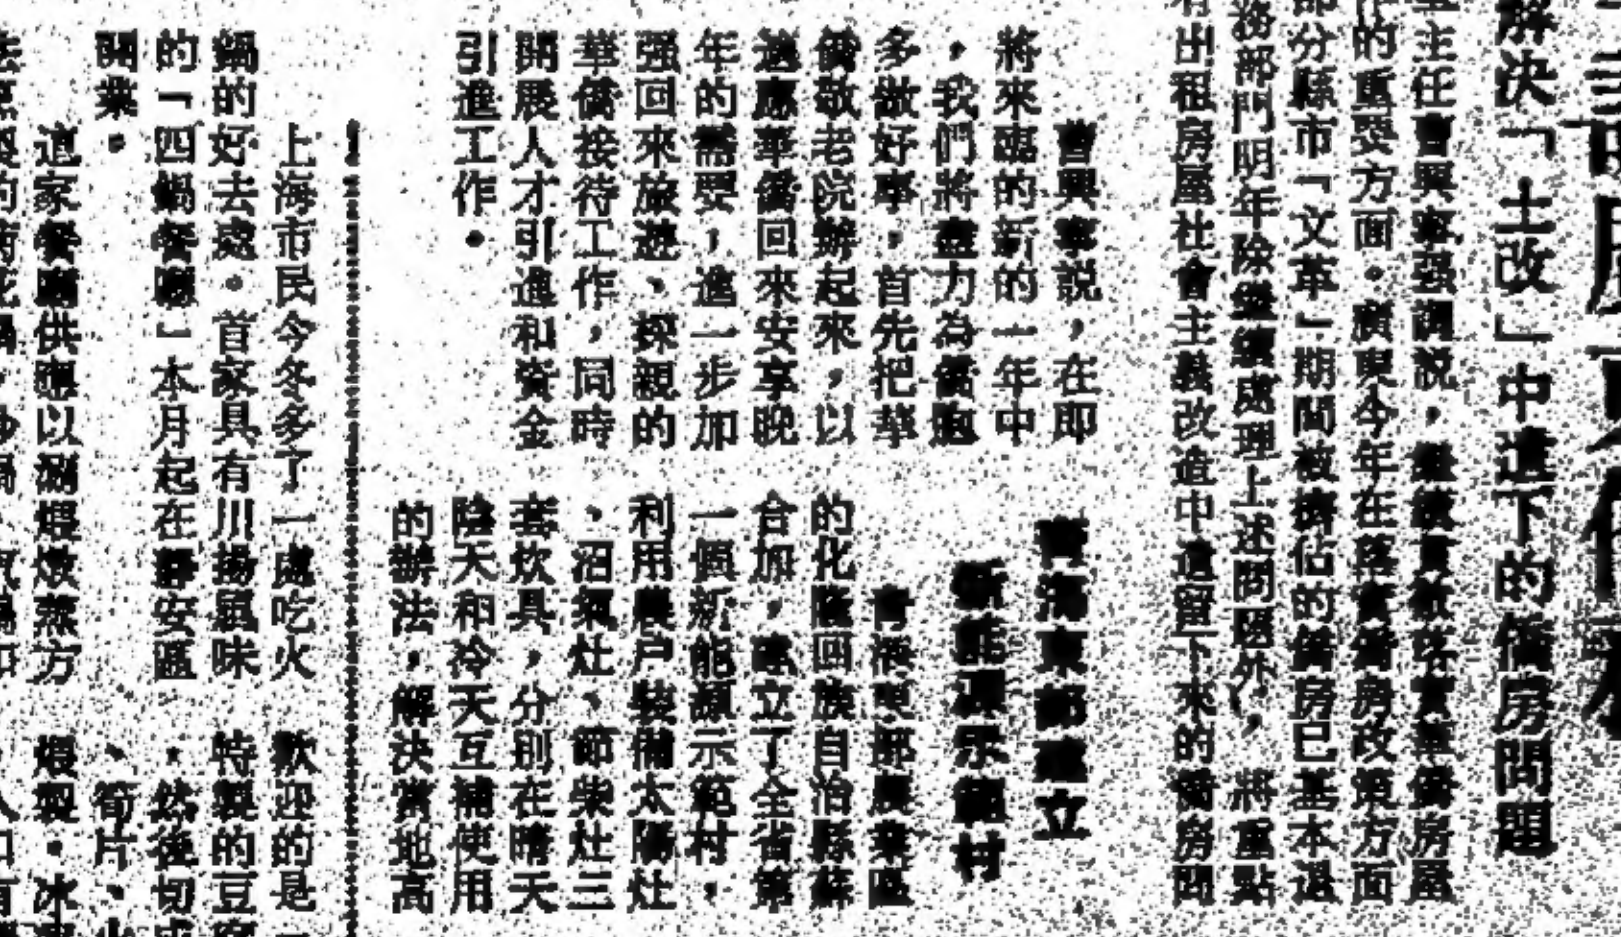 解決「土改」中遺下的僑房問題
主任曾興事强調説，繼續貫徹落實華僑房屋
的重要方面。廣東今年在落實僑房改策方面
部分縣市「文革」期間被擠佔的僑房已基本退
務部門明年除繼續處理上述問題外，將重點
出租房屋社會主義改造中遺留下來的僑房問
曾興事説，在即
將來臨的新的一年中
，我們將盡力為僑胞
多做好事，首先把華
僑敬老院辦起來，以
適應華僑回來安享晚
年的需要，進一步加
强回來旅遊、探親的
華僑接待工作，同時
開展人才引進和資金
引進工作。
青海東部建立
新能源示範村
青海東部農業區
的化隆回族自治縣蘇
合加，建立了全省第
一個新能源示範村，
利用農户裝備太陽灶
、沼氣灶、節柴灶三
套炊具，分別在晴天
陰天和冷天互補使用
的辦法，解決當地高
上海市民今冬多了一處吃火
鍋的好去處。首家具有川揚風味
的「四鍋餐廳」本月起在靜安區
開業。
這家餐廳供應以涮煨燉蒸方
歡迎的是
特製的豆
，然後切成
、筍片、
煨製。冰